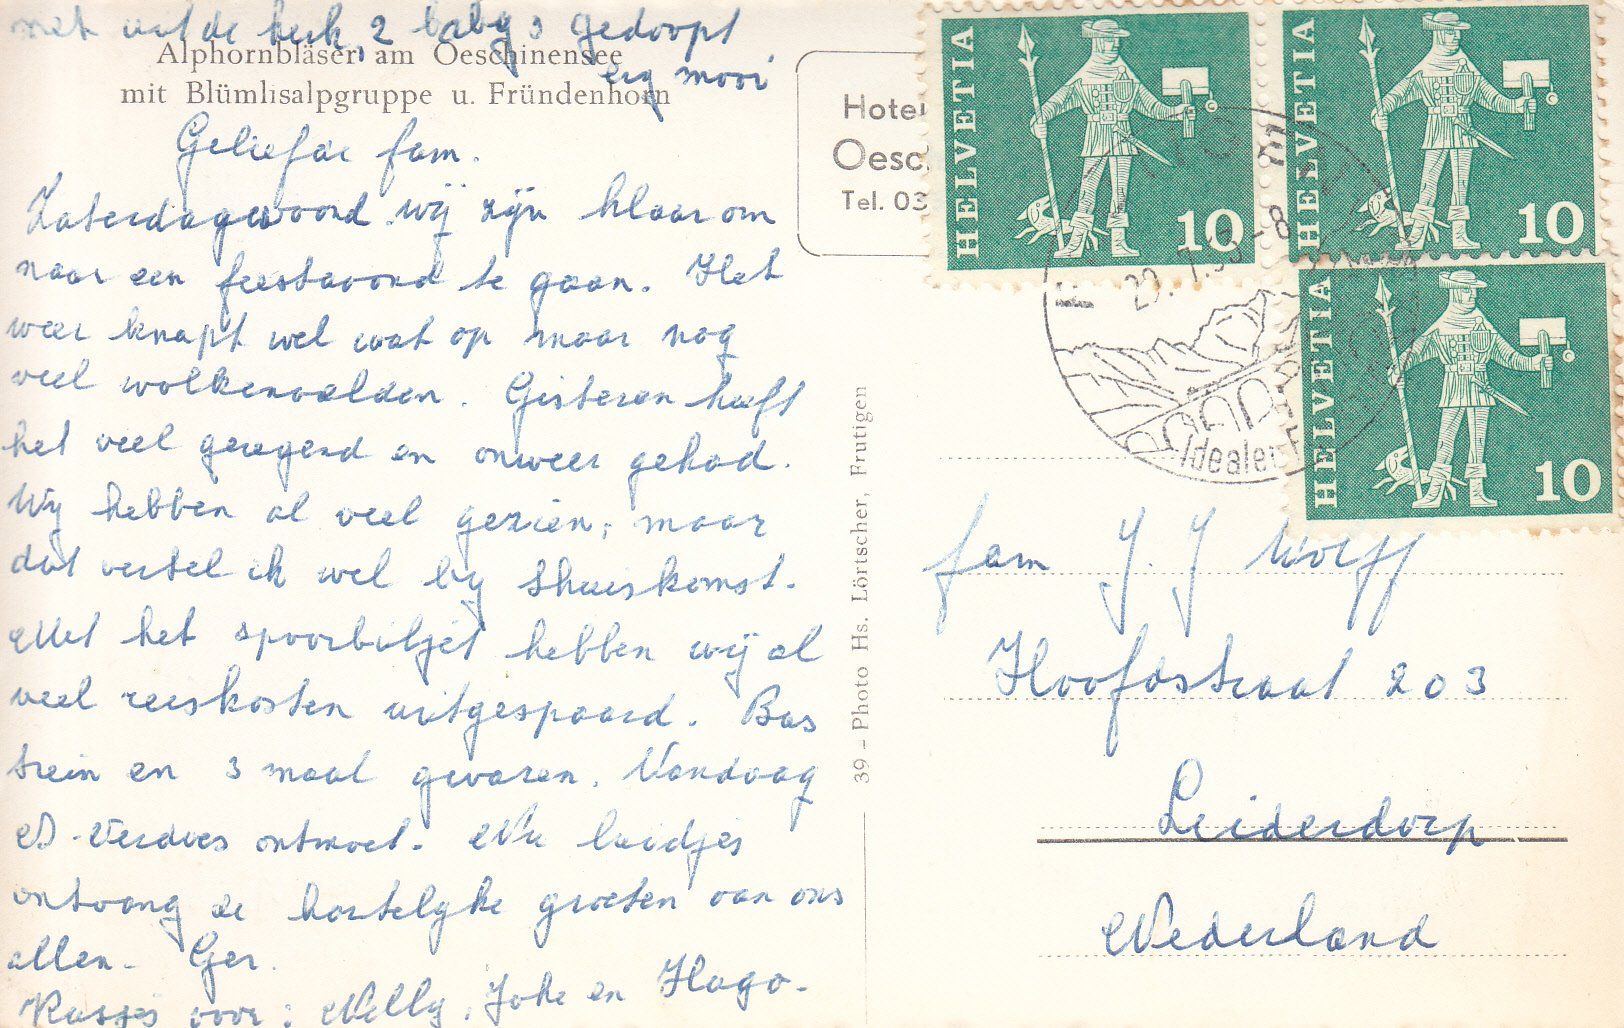 met volde kerk, 2 baby's gedoopt
erg mooi
Alphornbläser am Oeschinensee
mit Blümlisalpgruppe u. Fründenhorn
Geliefde fam.
Zaterdagavond wij zijn klaar om
naar een feestavond te gaan. Het
weer knapt wel wat op maar nog
veel wolkenvelden. Gisteren heeft
het veel geregend en onweer gehad.
Wij hebben al veel gezien, maar
dat vertel ik wel bij thuiskomst.
Met het spoorbiljet hebben wij al
veel reiskosten uitgespaard. Bus
trein en 3 maal gevaren. Vandaag
ontmoet. Nu luidjes
ontvang de hartelyke groeten van ons
allen. Ger.
Kusjes voor: Nelly, Joke en Hugo.
39 - Photo Hs. Lörtscher, Frutigen
Hotel
Oesc
Tel. 03
HELVETIA 10
HELVETIA 10
HELVETIA 10
29.7.63-8
Idealer
fam J. J Wolff
Hoofdstraat 203
Leiderdorp
Nederland